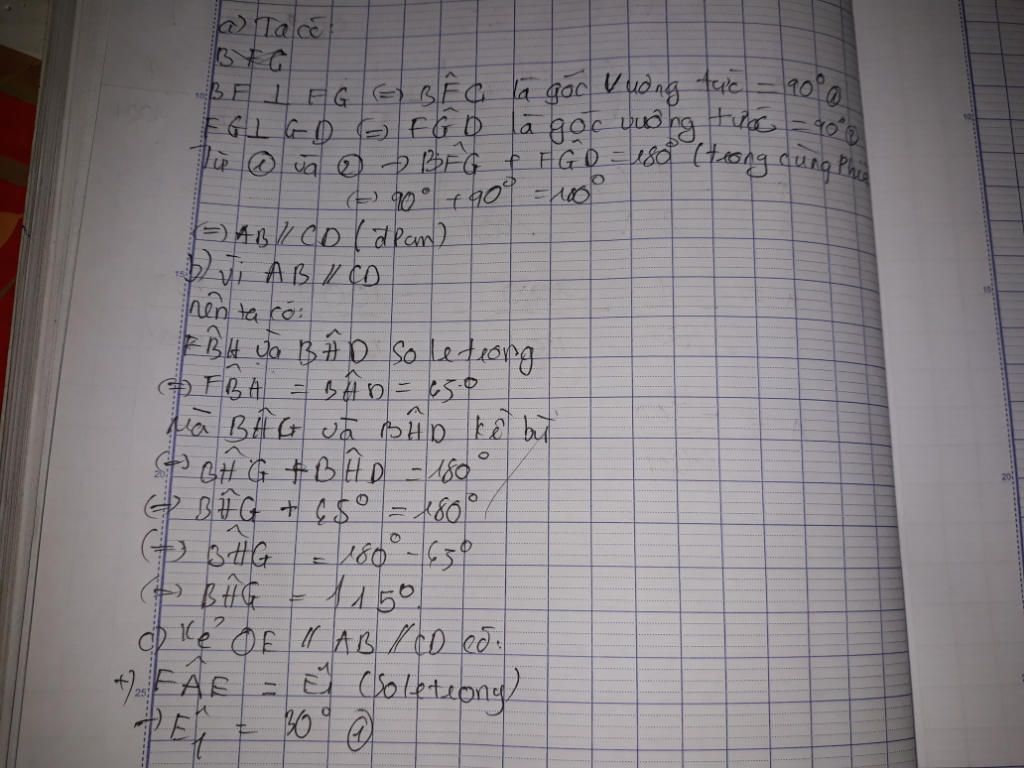 a) Ta có:
BFG
BF ⊥ FG (=) BF̂G là góc vuông tức = 90° ①
FG ⊥ GD (=) FĜD là góc vuông tức = 90° ②
Từ ① và ② → BF̂G + FĜD = 180° (trong cùng phía
(=) 90° + 90° = 180°
(=) AB // CD (đpcm)
b) Vì AB // CD
nên ta có:
FB̂H và BĤD so le trong
(=) FB̂H = BĤD = 65°
Mà BĤG và BĤD kề bù
(=) BĤG + BĤD = 180°
(=) BĤG + 65° = 180°
(=) BĤG = 180° - 65°
(=) BĤG = 115°
c) Kẻ OE // AB // CD có:
+) FÂE = Ê1 (so le trong)
→ Ê1 = 30° ①